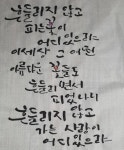 흔들리지 않고
피는 꽃이
어디 있으랴
이 세상 그 어떤
아름다운 꽃들도
흔들리면서
피었나니
흔들리지 않고
가는 사람이
어디 있으랴